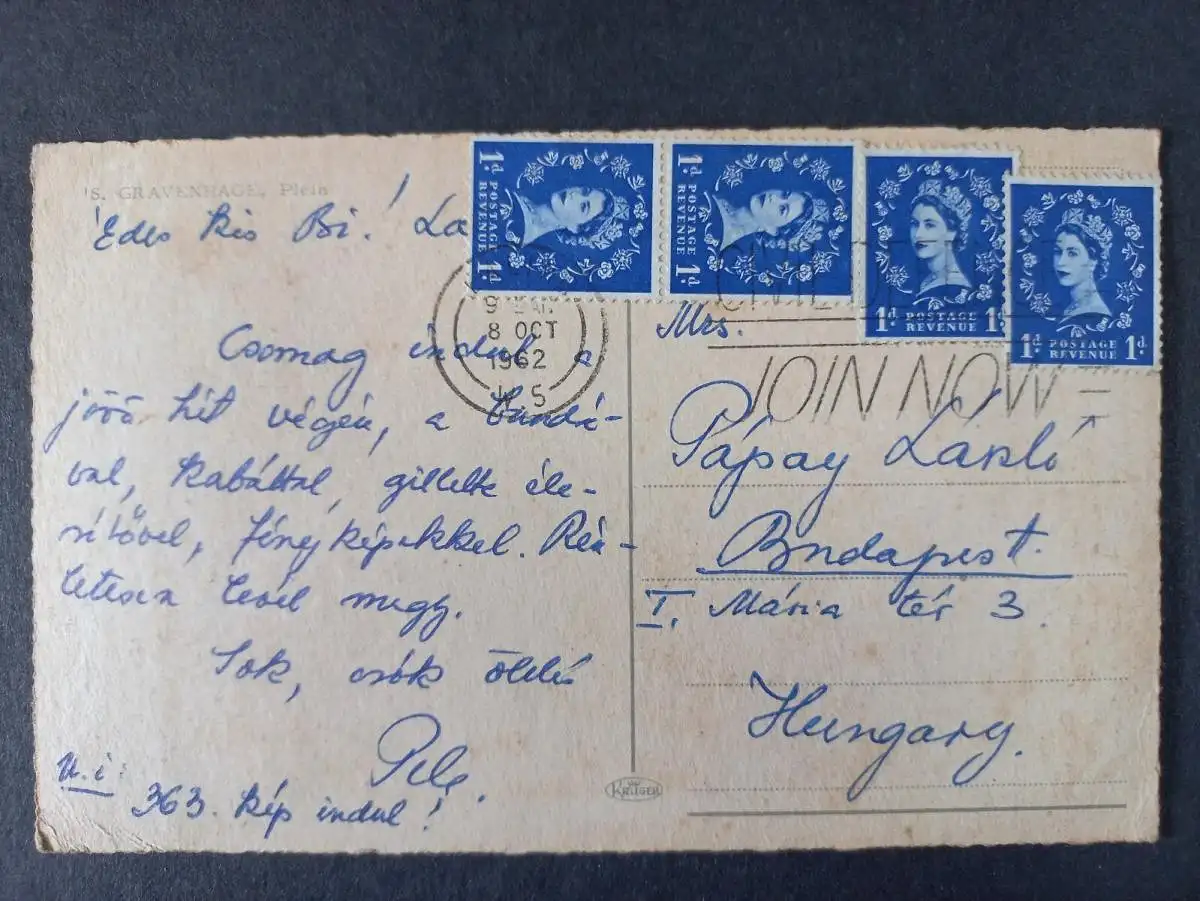 'S. GRAVENHAGE, Plein
Édes kis Bi! La
Csomag indul a
jövő hét végén, a bundá-
val, kabáttal, gillette éle-
sítővel, fényképekkel. Rész-
letesen levél megy.
Sok, csók ölelés
U.i:
363. kép indul!
1d. POSTAGE REVENUE 1d.
1d. POSTAGE REVENUE 1d.
1d. POSTAGE REVENUE 1d.
1d. POSTAGE REVENUE 1d.
8 OCT
1962
CIVIL DE
JOIN NOW
Mrs.
Pápay László
Budapest.
I. Mária tér 3.
Hungary.
KRÜGER